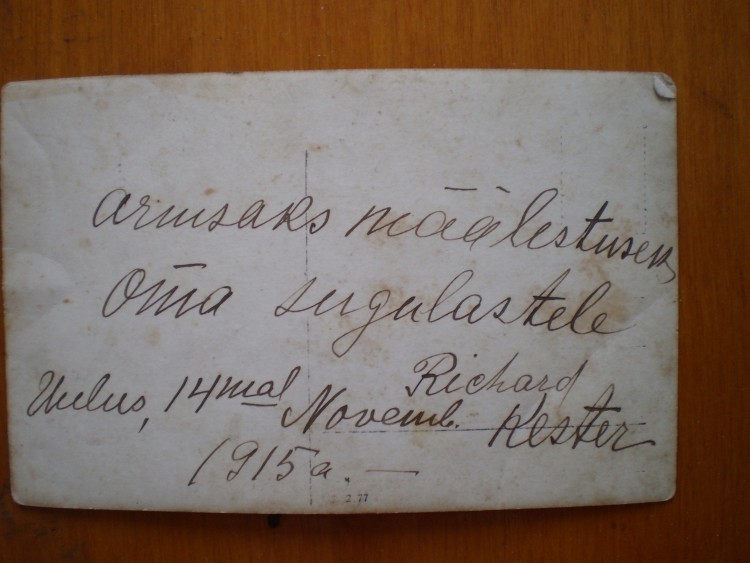 armsaks määlestuseks
Oma sugulastele
Uulus, 14mal Novemb. Richard Kester
1915a. —
2.77